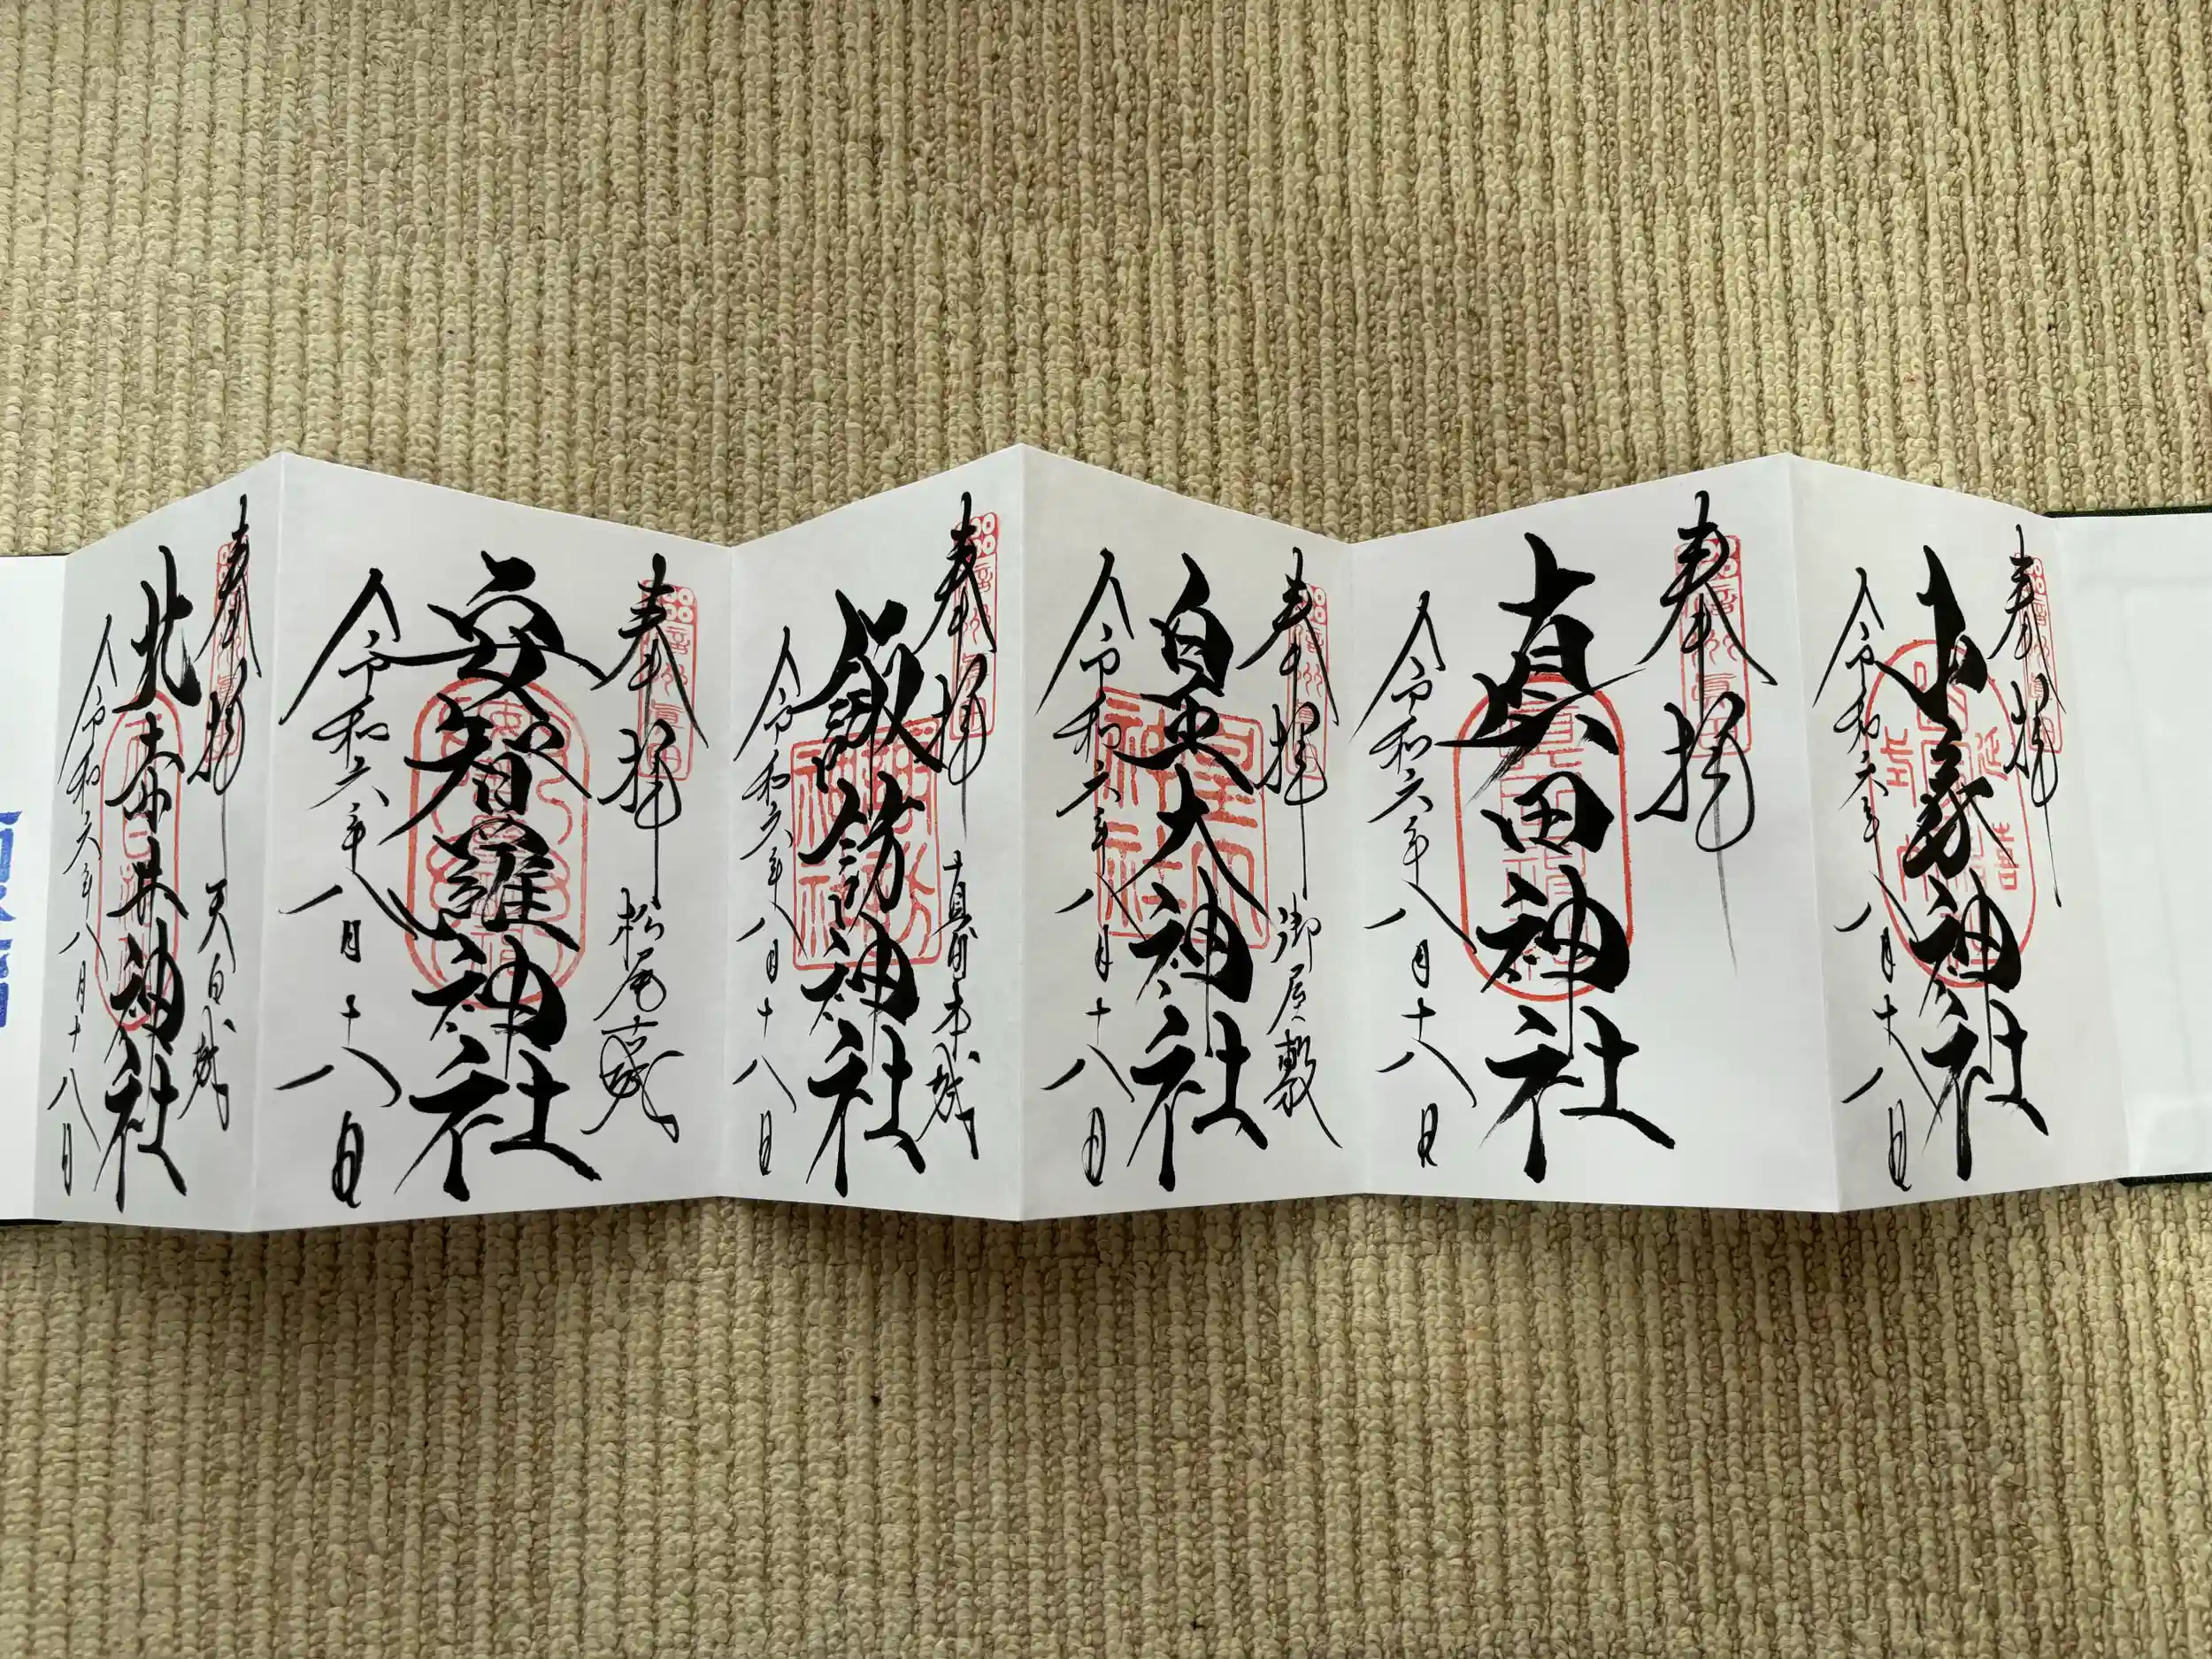 奉拝
信州真田
山家神社
令和六年八月十八日
奉拝
信州真田
真田神社
令和六年八月十八日
奉拝 御屋敷
信州真田
皇大神社
令和六年八月十八日
奉拝 真田本城
信州真田
諏訪神社
令和六年八月十八日
奉拝 松尾古城
信州真田
安智羅神社
令和六年八月十八日
奉拝 天白城
北赤井神社
令和六年八月十八日